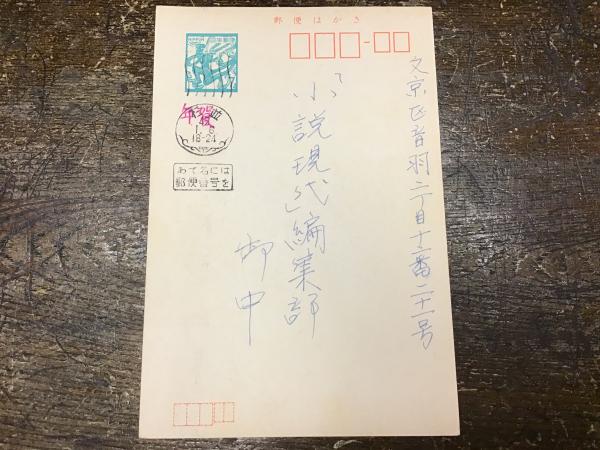 郵便はがき
文京区音羽二丁目十二番二十一号
「小説現代」編集部
御中
NIPPON
年賀
1.6
18-24
あて名には
郵便番号を